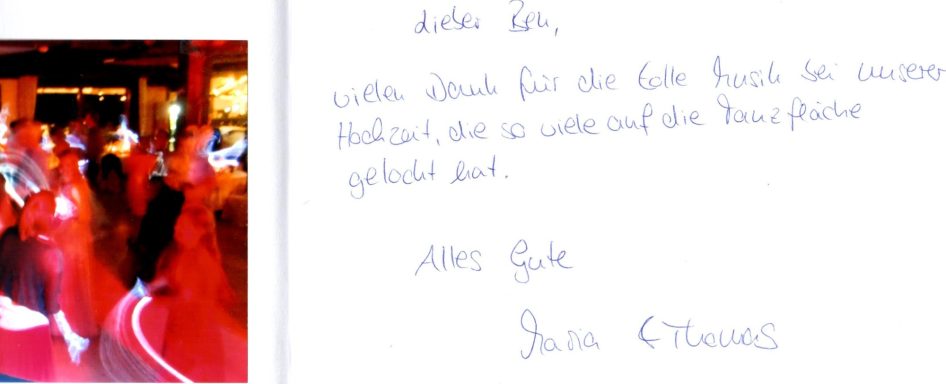 Lieber Ben,
vielen Dank für die tolle Musik bei unserer
Hochzeit, die so viele auf die Tanzfläche
gelockt hat.
Alles Gute
Maria & Thomas